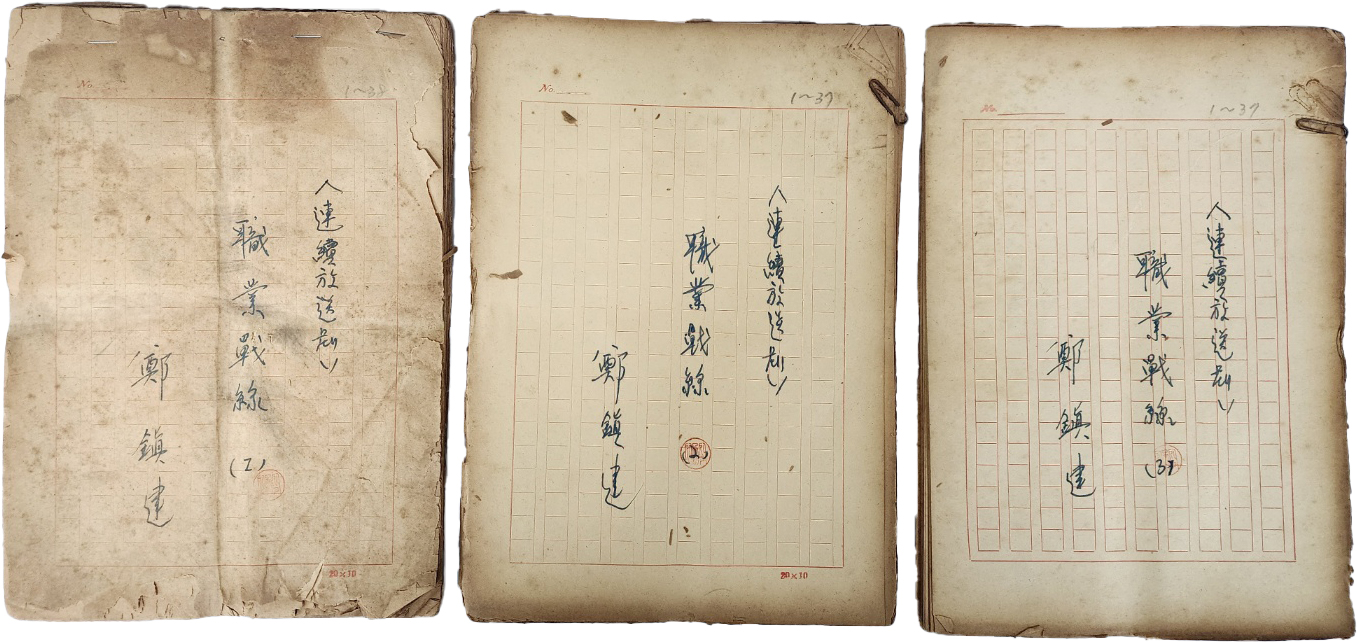 No.
〈連續放送劇〉
職業戰線
(I)
鄭鎭建
20×30
No.
1~37
〈連續放送劇〉
職業戰線
(2)
鄭鎭建
20×30
No.
1~37
〈連續放送劇〉
職業戰線
(3)
鄭鎭建